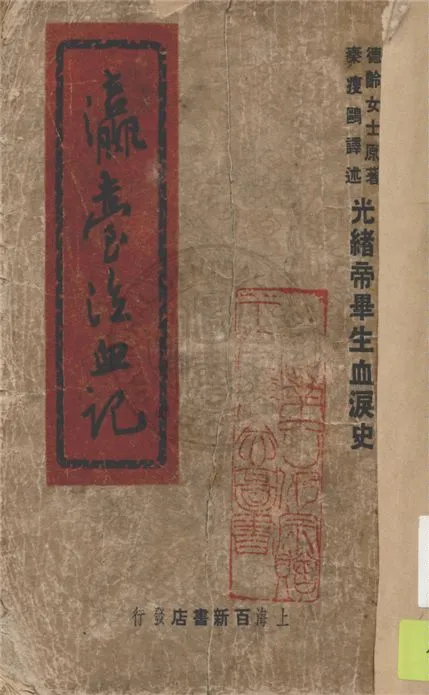 德齡女士原著
秦瘦鷗譯述
光緒帝畢生血淚史
瀛臺泣血記
上海百新書店發行